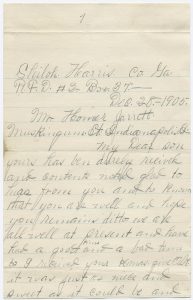 1
Shiloh Harris Co Ga.
R.F.D. #2 Box 37
Dec. 28 - 1905.
Mr. Homer Jarrett
Muskingum St Indianapolis
My dear son
yours has ben duely receivd
and contents noted glad to
hear from you and to know
that you are well and hope
you remains ditto we are
all well at present and have
had a good and a bad time
to I recived your xmas gift
it was just as nice and
sweet as it could be and